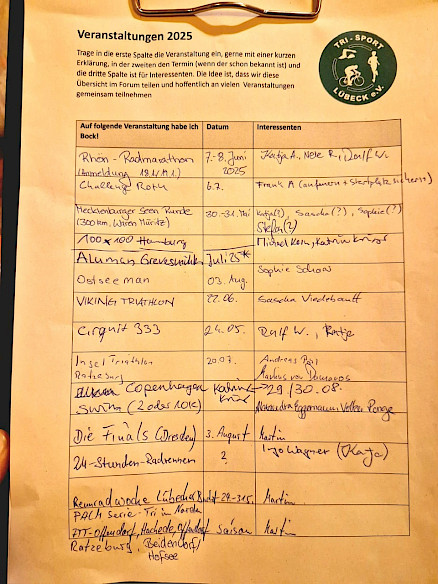 Veranstaltungen 2025
Trage in die erste Spalte die Veranstaltung ein, gerne mit einer kurzen
Erklärung, in der zweiten den Termin (wenn der schon bekannt ist) und
die dritte Spalte ist für Interessenten. Die Idee ist, dass wir diese
Übersicht im Forum teilen und hoffentlich an vielen Veranstaltungen
gemeinsam teilnehmen
TRI - SPORT
LÜBECK e.V.
Auf folgende Veranstaltung habe ich Bock! Datum Interessenten
Rhön - Radmarathon 7.-8. Juni Katja A., Nele R., Ralf W.
(Anmeldung 18.1.) 2025
Challenge Roth 6.7. Frank A
Mecklenburger Seen Runde 30.-31. Mai Katja(?), Sascha(?), Sophie(?)
(300km, Waren Müritz) Stefan(?)
100x100 Hamburg
Grevesmühlen, Juli 25*
Ostseeman 03. Aug. Sophie
VIKING TRIATHLON 22.06. Sascha
Cirquit 333 24.05. Ralf W., Katja
Insel Triathlon 20.07. Andreas
Ratzeburg Markus von
Copenhagen Katrin 29/30.08.
Swim (2 oder 10K) Alexandra Eggemann, Volker
Die Finals (Dresden) 3. August Martin
24-Stunden-Radrennen ? Ingo Wagner (Katja)
Rennradwoche Lübecker Bucht 24.-31.5. Martin
Serie - Tri im Norden
Offendorf Saison Martin
Ratzeburg, Beidendorf/
Hofsee